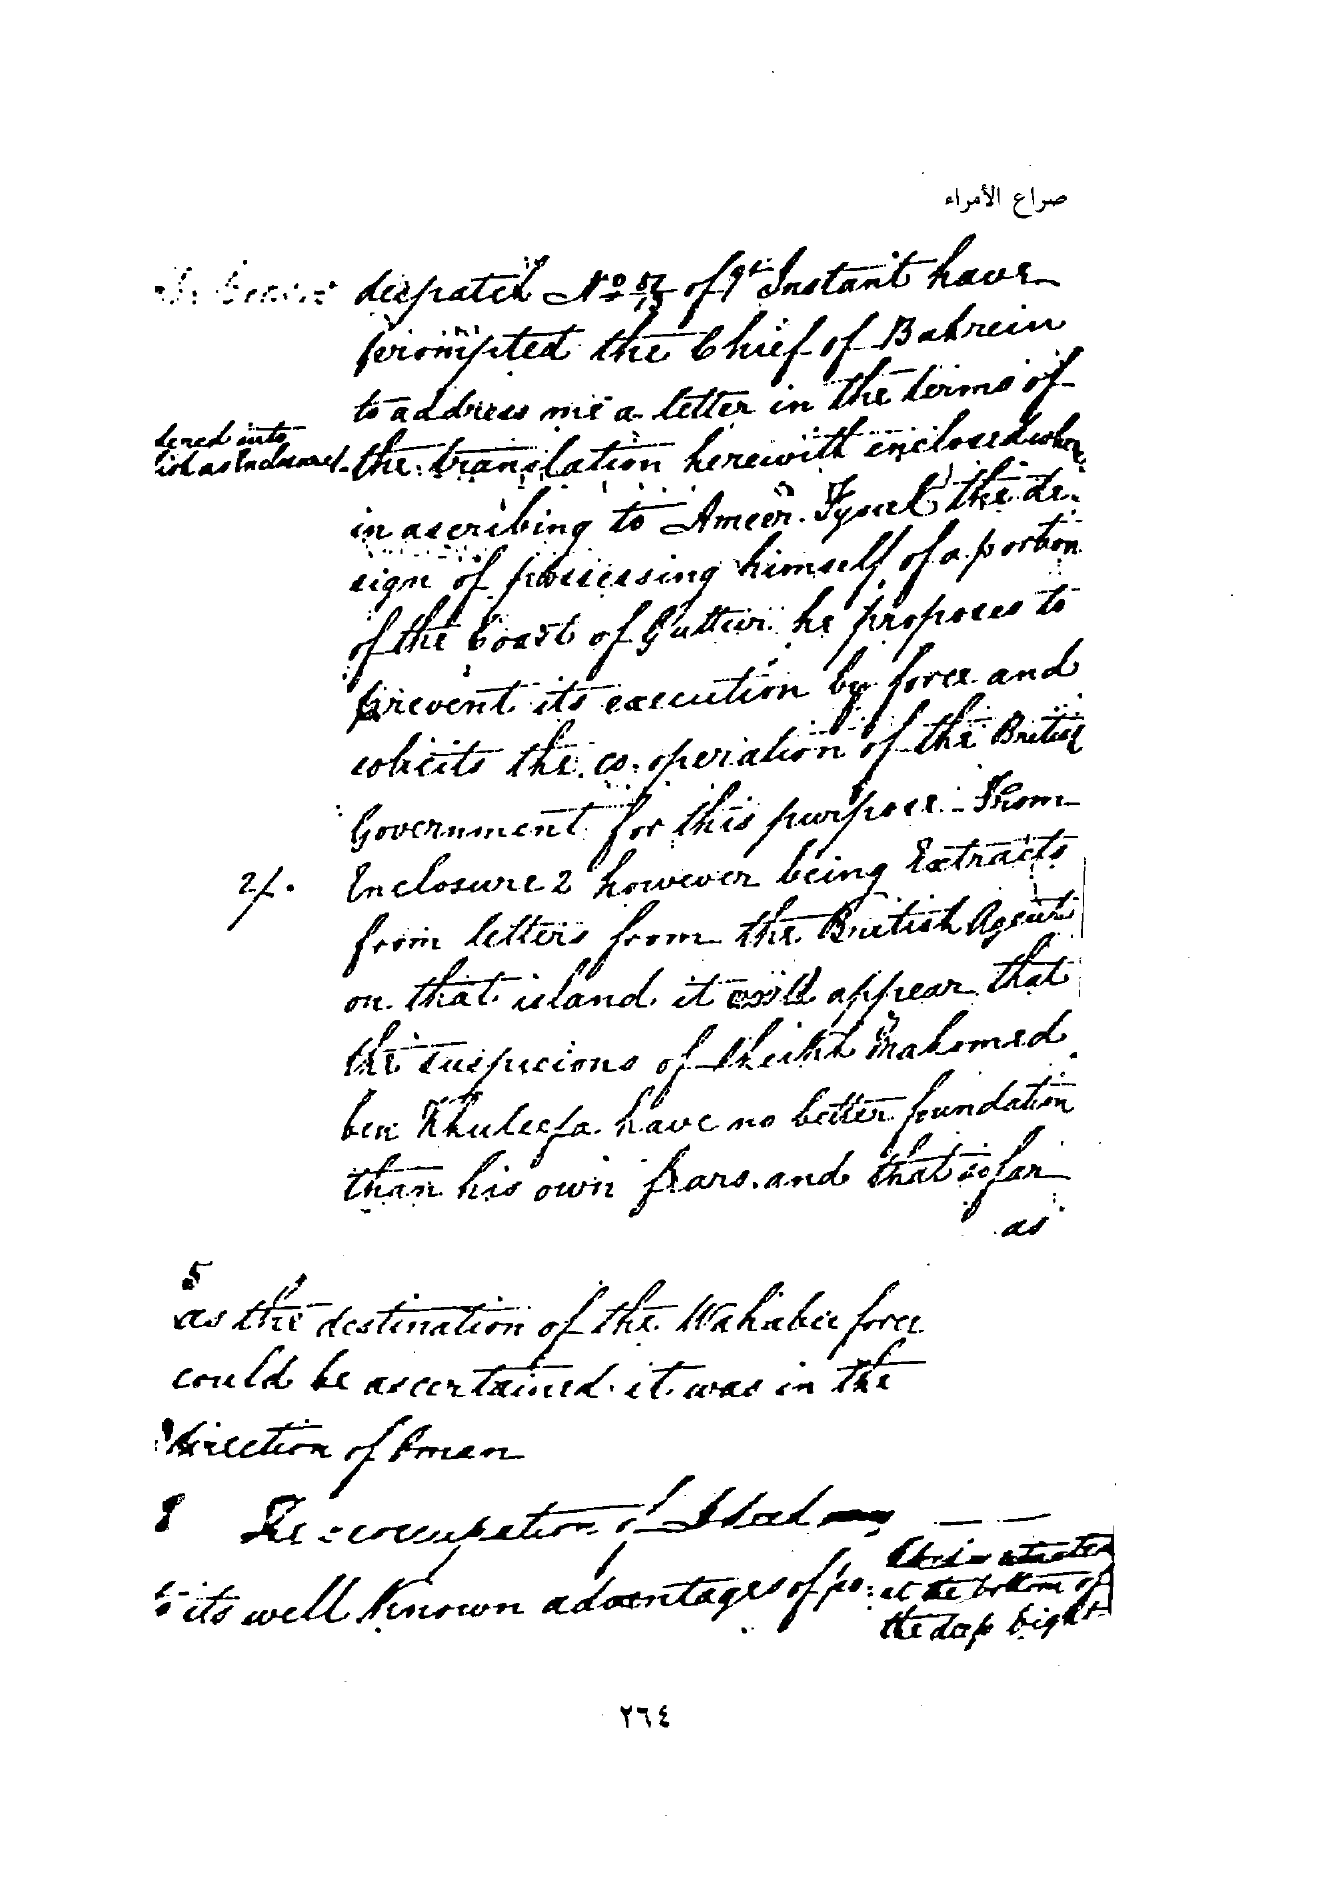 صراع الأمراء
despatch No of 9th Instant have
prompted the Chief of Bahrein
to address me a letter in the terms of
the translation herewith enclosed where
in ascribing to Ameer Fysul the de-
sign of possessing himself of a portion
of the Coast of Guttur he proposes to
prevent its execution by force and
solicits the co-operation of the British
Government for this purpose - From
2/. Enclosure 2 however being Extracts
from letters from the British Agent
on that island it will appear that
the suspicions of Sheikh Mahomed
ben Khuleefa have no better foundation
than his own fears and that so far
as
5
as the destination of the Wahabee force
could be ascertained it was in the
direction of Oman
8 The occupation of
to its well known advantages of po-
at the bottom of
the deep bight
٢٦٤